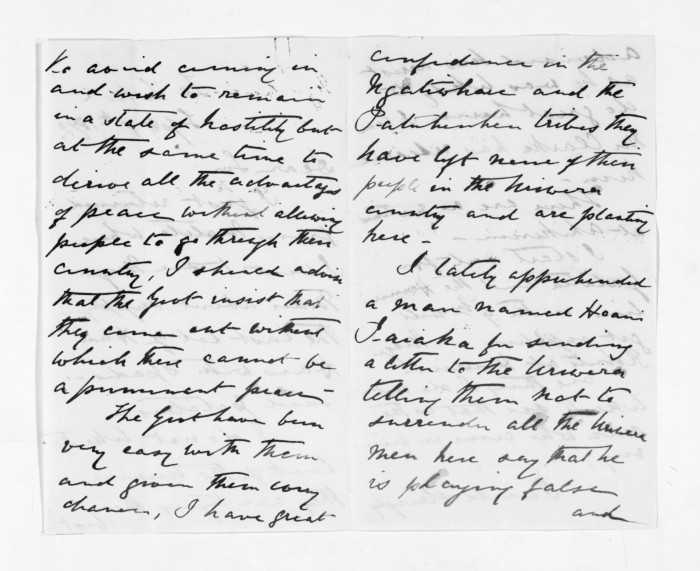 to avoid coming in
and wish to remain
in a state of hostility but
at the same time to
derive all the advantages
of peace without allowing
people to go through their
country, I should advise
that the Govt insist that
they come out without
which there cannot be
a permanent peace –
The Govt have been
very easy with them
and given them every
chance, I have great
confidence in the
Ngatiwhare and the
Patuheuheu tribes they
have left none of their
people in the Uriwera
country and are planting
here –
I lately apprehended
a man named Hoani
for sending
a letter to the Uriwera
telling them not to
surrender all the Uriwera
men here say that he
is playing false
and